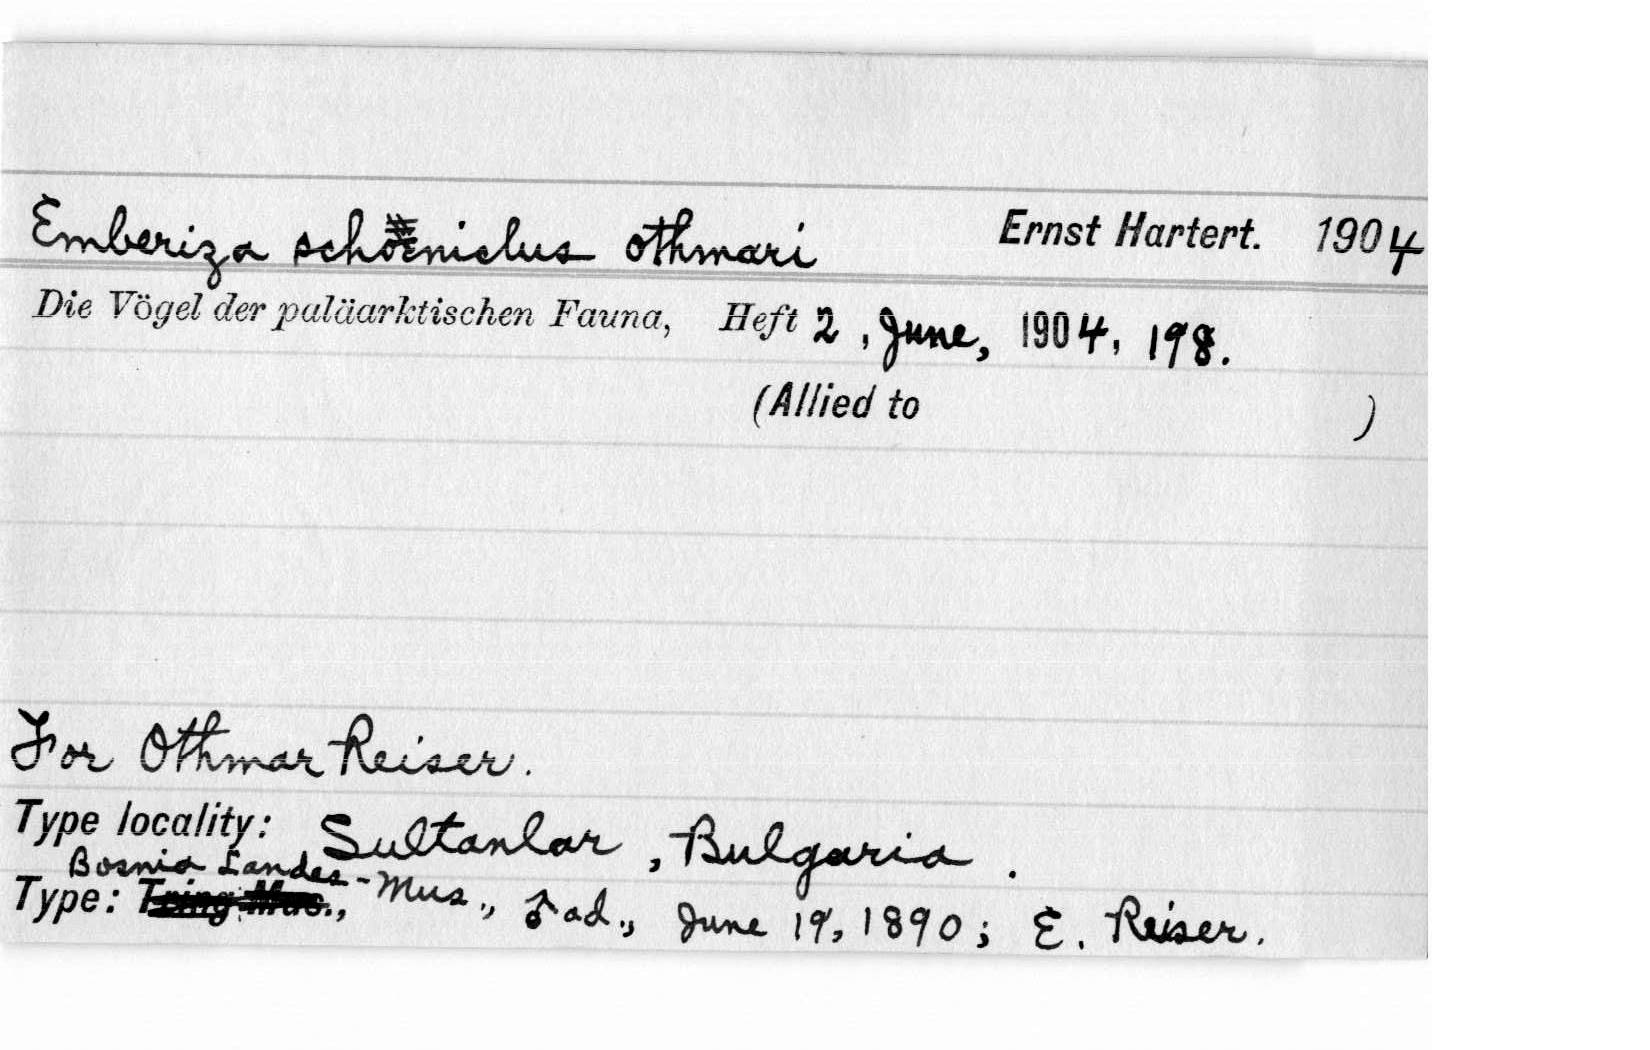 Emberiza schœniclus othmari Ernst Hartert. 1904
Die Vögel der paläarktischen Fauna, Heft 2, June, 1904, 198.
(Allied to )
For Othmar Reiser.
Type locality: Sultanlar, Bulgaria.
Bosnia Landes-Mus.,
Type: Tring Mus., ♂ ad., June 19, 1890; E. Reiser.